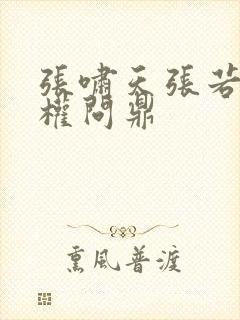 張嘯天張若
權問鼎
熏風普渡